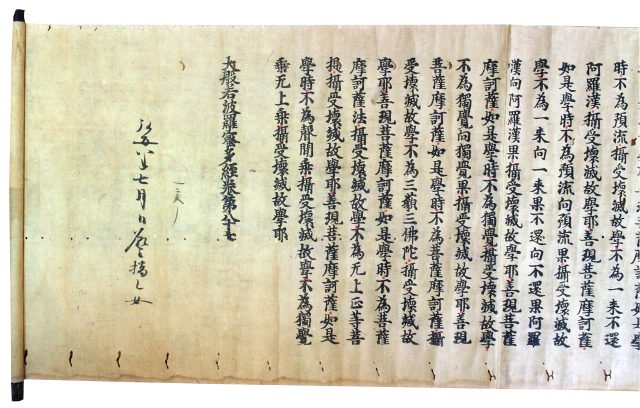 時不為預流攝受壞滅故學不為一來不還
阿羅漢攝受壞滅故學耶善現菩薩摩訶薩
如是學時不為預流向預流果攝受壞滅故
學不為一来向一来果不還向不還果阿羅
漢向阿羅漢果攝受壞滅故學耶善現菩薩
摩訶薩如是學時不為獨覺攝受壞滅故學
不為獨覺向獨覺果攝受壞滅故學耶善現
菩薩摩訶薩如是學時不為菩薩摩訶薩攝
受壞滅故學不為三藐三佛陀攝受壞滅故
學耶善現菩薩摩訶薩如是學時不為菩薩
摩訶薩法攝受壞滅故學不為无上正等菩
提攝受壞滅故學耶善現菩薩摩訶薩如是
學時不為聲聞乘攝受壞滅故學不為獨覺
乘无上乘攝受壞滅故學耶
大般若波羅蜜多經卷第八十七
七月日